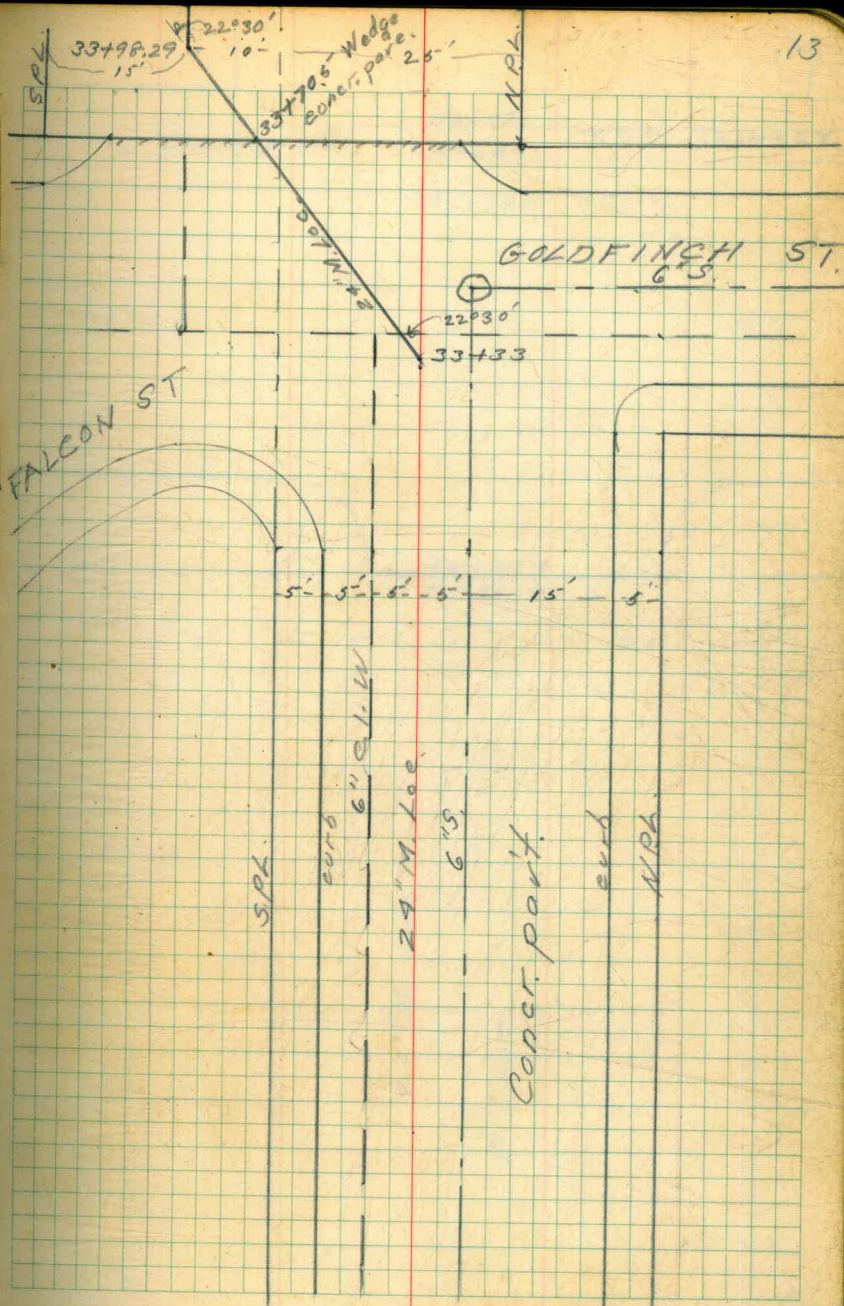 13
22°30'
33+98.29 - 10' -
15'
25'
S.P.L.
N.P.L.
33+70.5 Wedge
concr. pave.
24" M. Loc.
GOLDFINCH ST.
6" S.
22°30'
33+33
FALCON ST
5' - 5' - 5' - 5' - 15' - 5'
S.P.L.
curb
6" C.I.W
24" M. Loc.
6" S.
Concr. pav't.
curb
N.P.L.